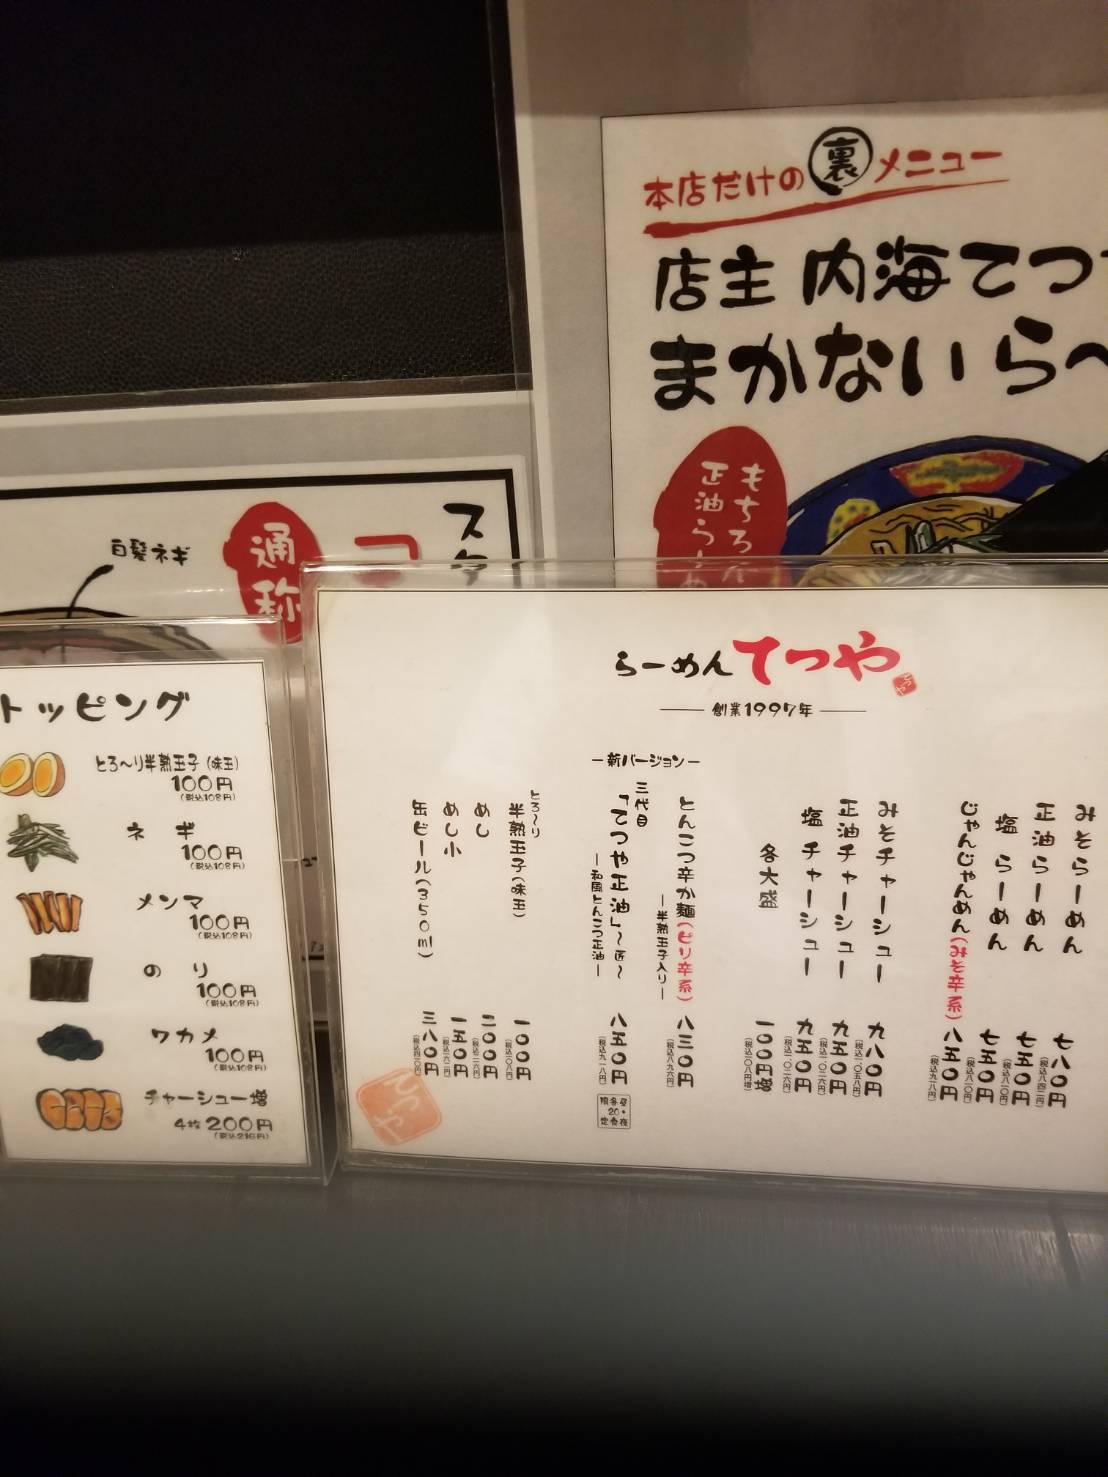 本店だけの裏メニュー
店主 内海てつ
まかないら〜
もちろん
正油らーめ
スタ
コ
通称
白髪ネギ
トッピング
とろ〜り半熟玉子(味玉)
100円
(税込108円)
ネギ
100円
(税込108円)
メンマ
100円
(税込108円)
のり
100円
(税込108円)
ワカメ
100円
(税込108円)
チャーシュー増
4枚 200円
(税込216円)
らーめん てつや
創業1997年
みそらーめん 七八〇円
(税込八四二円)
正油らーめん 七五〇円
(税込八一〇円)
塩らーめん 七五〇円
(税込八一〇円)
じゃんじゃんめん(みそ辛系) 八五〇円
(税込九一八円)
みそチャーシュー 九八〇円
(税込一〇五八円)
正油チャーシュー 九五〇円
(税込一〇二六円)
塩チャーシュー 九五〇円
(税込一〇二六円)
各大盛 一〇〇円増
(税込一〇八円増)
ー新バージョンー
とんこつ辛か麺(ピリ辛系) 八三〇円
ー半熟玉子入りー (税込八九六円)
三代目
「てつや正油」〜匠〜 八五〇円
ー和風とんこつ正油ー (税込九一八円)
昼・夜
各20食
限定
とろ〜り
半熟玉子(味玉) 一〇〇円
(税込一〇八円)
めし 二〇〇円
(税込二一六円)
めし小 一五〇円
(税込一六二円)
缶ビール(350ml) 三八〇円
(税込四一〇円)
てつや